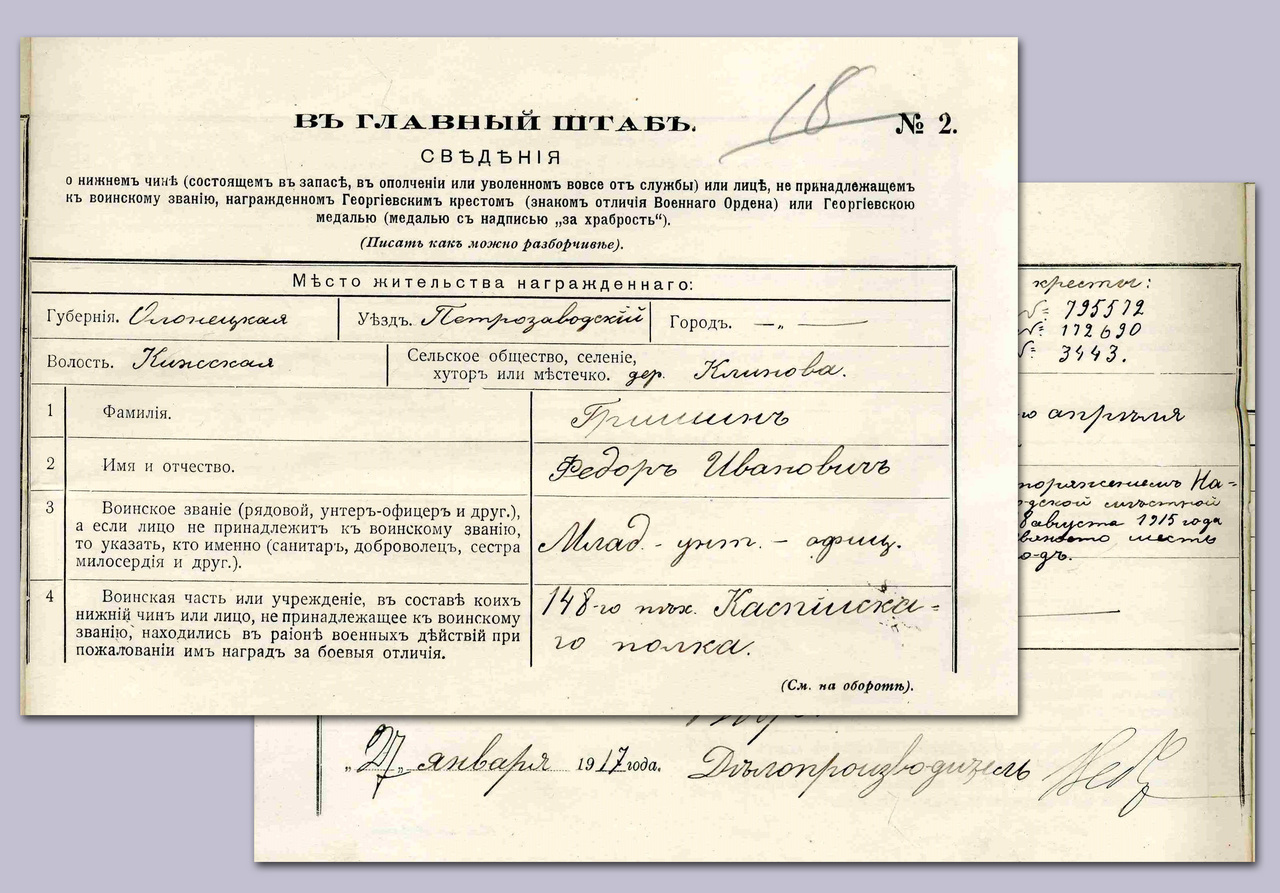 18
№ 2.
ВЪ ГЛАВНЫЙ ШТАБЪ.
СВѢДѢНІЯ
о нижнемъ чинѣ (состоящемъ въ запасѣ, въ ополченіи или уволенномъ вовсе отъ службы) или лицѣ, не принадлежащемъ
къ воинскому званію, награжденномъ Георгіевскимъ крестомъ (знакомъ отличія Военнаго Ордена) или Георгіевскою
медалью (медалью съ надписью „за храбрость“).
(Писать какъ можно разборчивѣе).
Мѣсто жительства награжденнаго:
Губернія. Олонецкая Уѣздъ. Петрозаводскій Городъ. — „ —
Волость. Кижская Сельское общество, селеніе,
хуторъ или мѣстечко. дер. Климова.
1 Фамилія. Гришинъ
2 Имя и отчество. Федоръ Ивановичъ
3 Воинское званіе (рядовой, унтеръ-офицеръ и друг.),
а если лицо не принадлежитъ къ воинскому званію,
то указать, кто именно (санитаръ, доброволецъ, сестра
милосердія и друг.).
Млад. - унт. - офиц.
4 Воинская часть или учрежденіе, въ составѣ коихъ
нижній чинъ или лицо, не принадлежащее къ воинскому
званію, находились въ раіонѣ военныхъ дѣйствій при
пожалованіи имъ наградъ за боевыя отличія.
148-го пѣх. Каспійска-
го полка.
(См. на оборотѣ).
кресты:
№ 795572
№ 172690
№ 3443.
го апрѣля
поряженіемъ На-
8 августа 1915 года
одъ.
„27„ января 1917 года. Дѣлопроизводитель